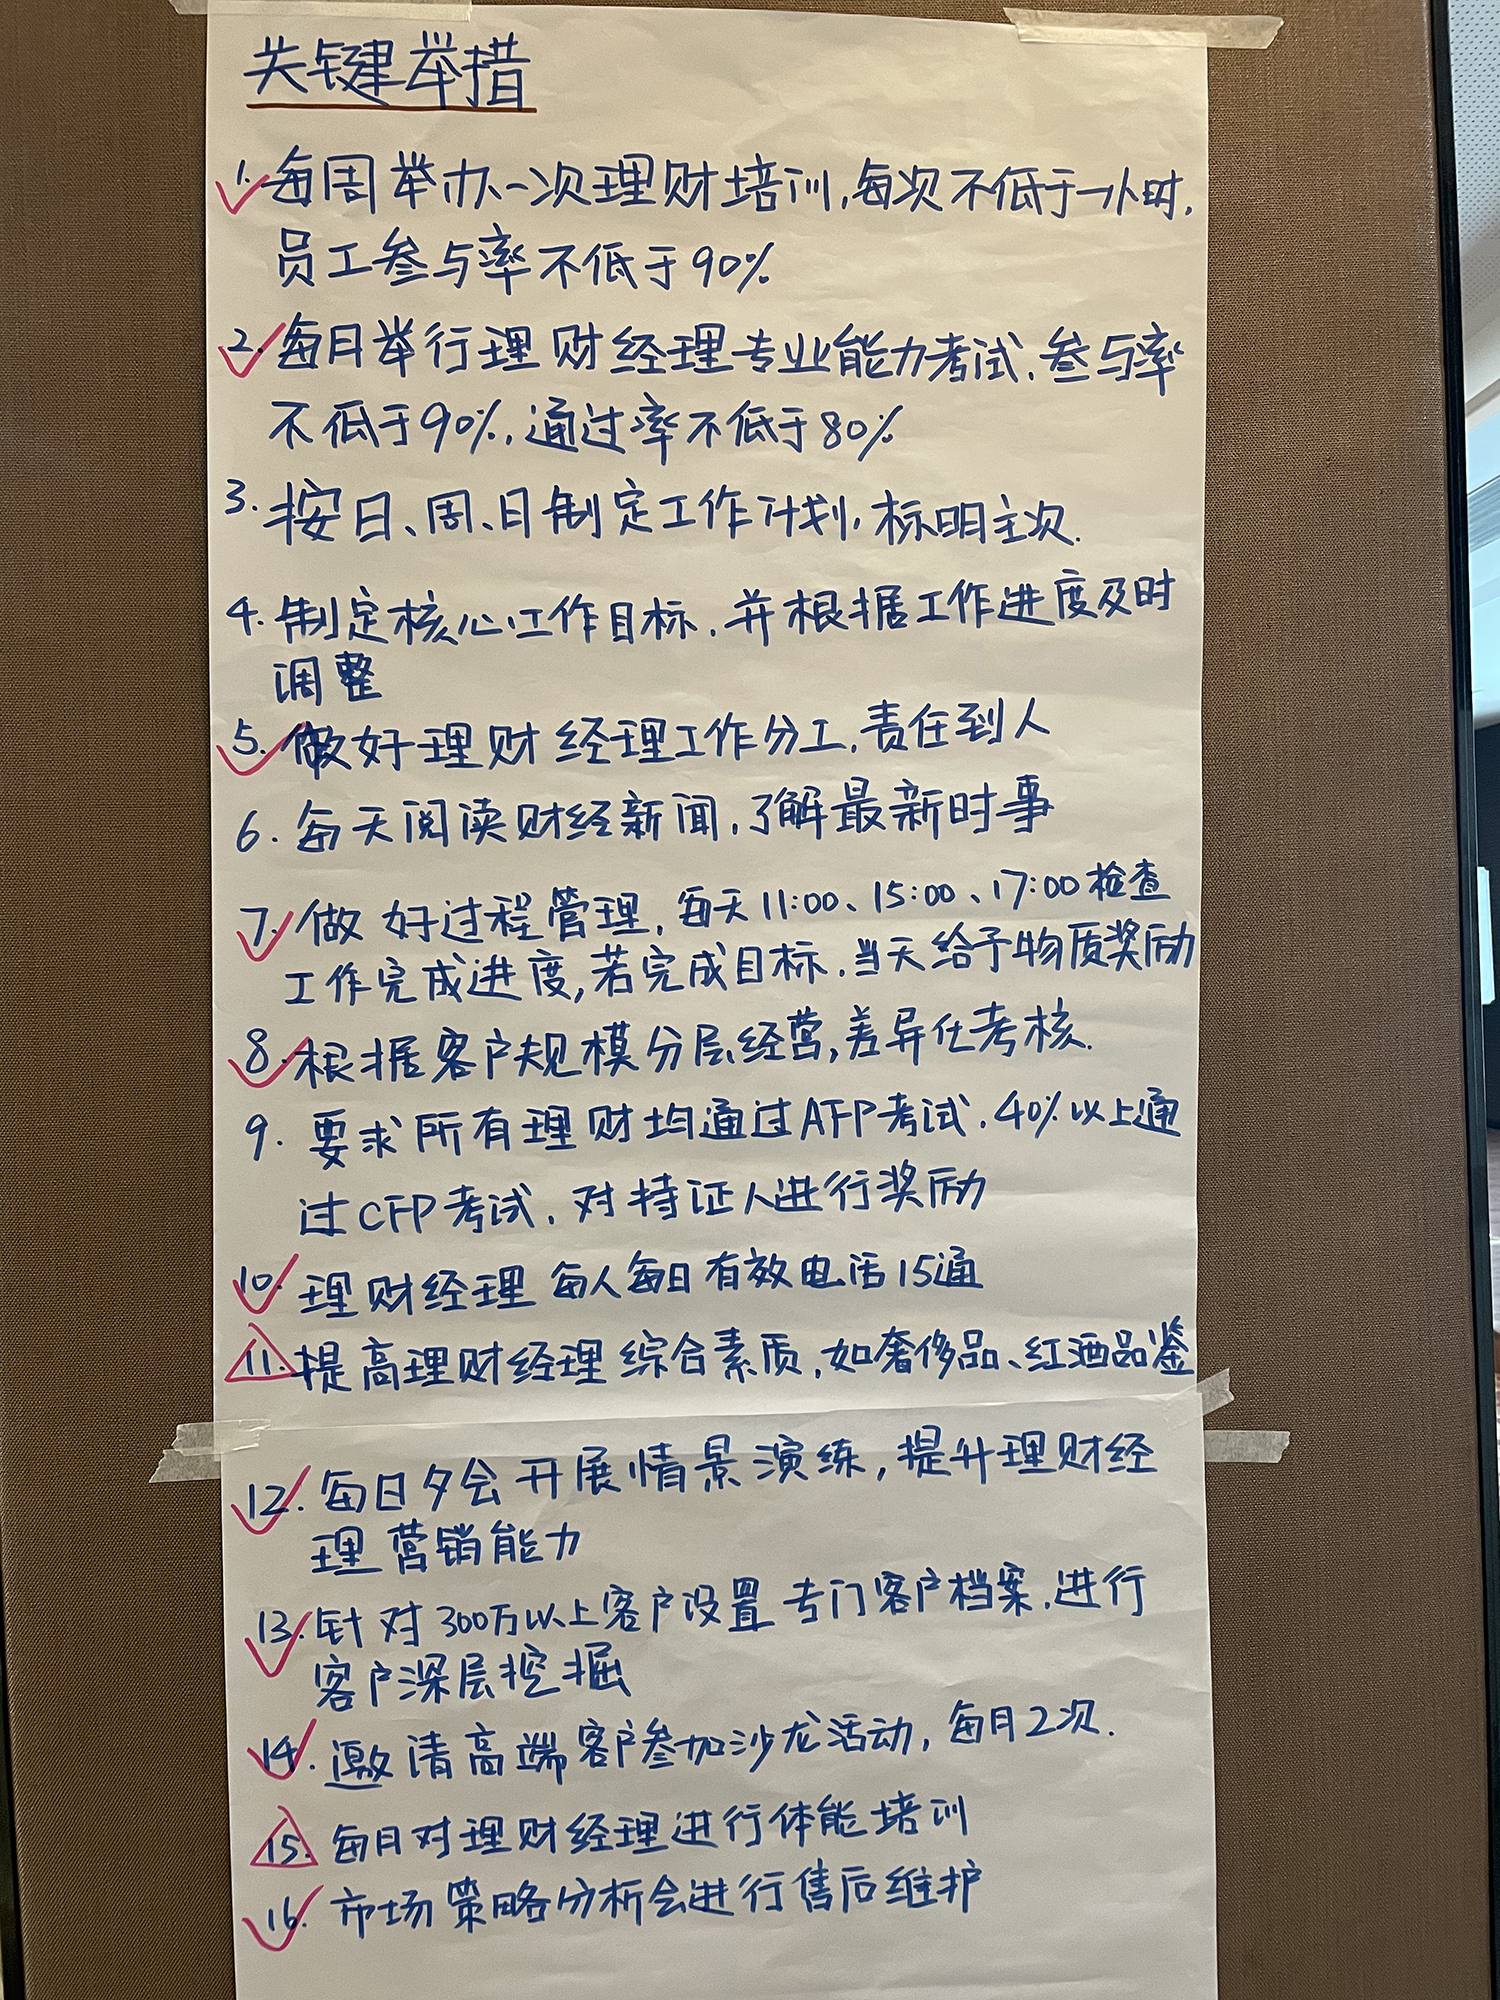 关键举措
1. 每周举办一次理财培训,每次不低于一小时,
员工参与率不低于90%
2. 每月举行理财经理专业能力考试,参与率
不低于90%,通过率不低于80%
3. 按日、周、日制定工作计划,标明主次.
4. 制定核心工作目标,并根据工作进度及时
调整
5. 做好理财经理工作分工,责任到人
6. 每天阅读财经新闻,了解最新时事
7. 做好过程管理,每天11:00、15:00、17:00检查
工作完成进度,若完成目标,当天给予物质奖励
8. 根据客户规模分层经营,差异化考核.
9. 要求所有理财均通过AFP考试,40%以上通
过CFP考试,对持证人进行奖励
10. 理财经理每人每日有效电话15通
11. 提高理财经理综合素质,如奢侈品、红酒品鉴
12. 每日夕会开展情景演练,提升理财经
理营销能力
13. 针对300万以上客户设置专门客户档案,进行
客户深层挖掘
14. 邀请高端客户参加沙龙活动,每月2次.
15. 每月对理财经理进行体能培训
16. 市场策略分析会进行售后维护